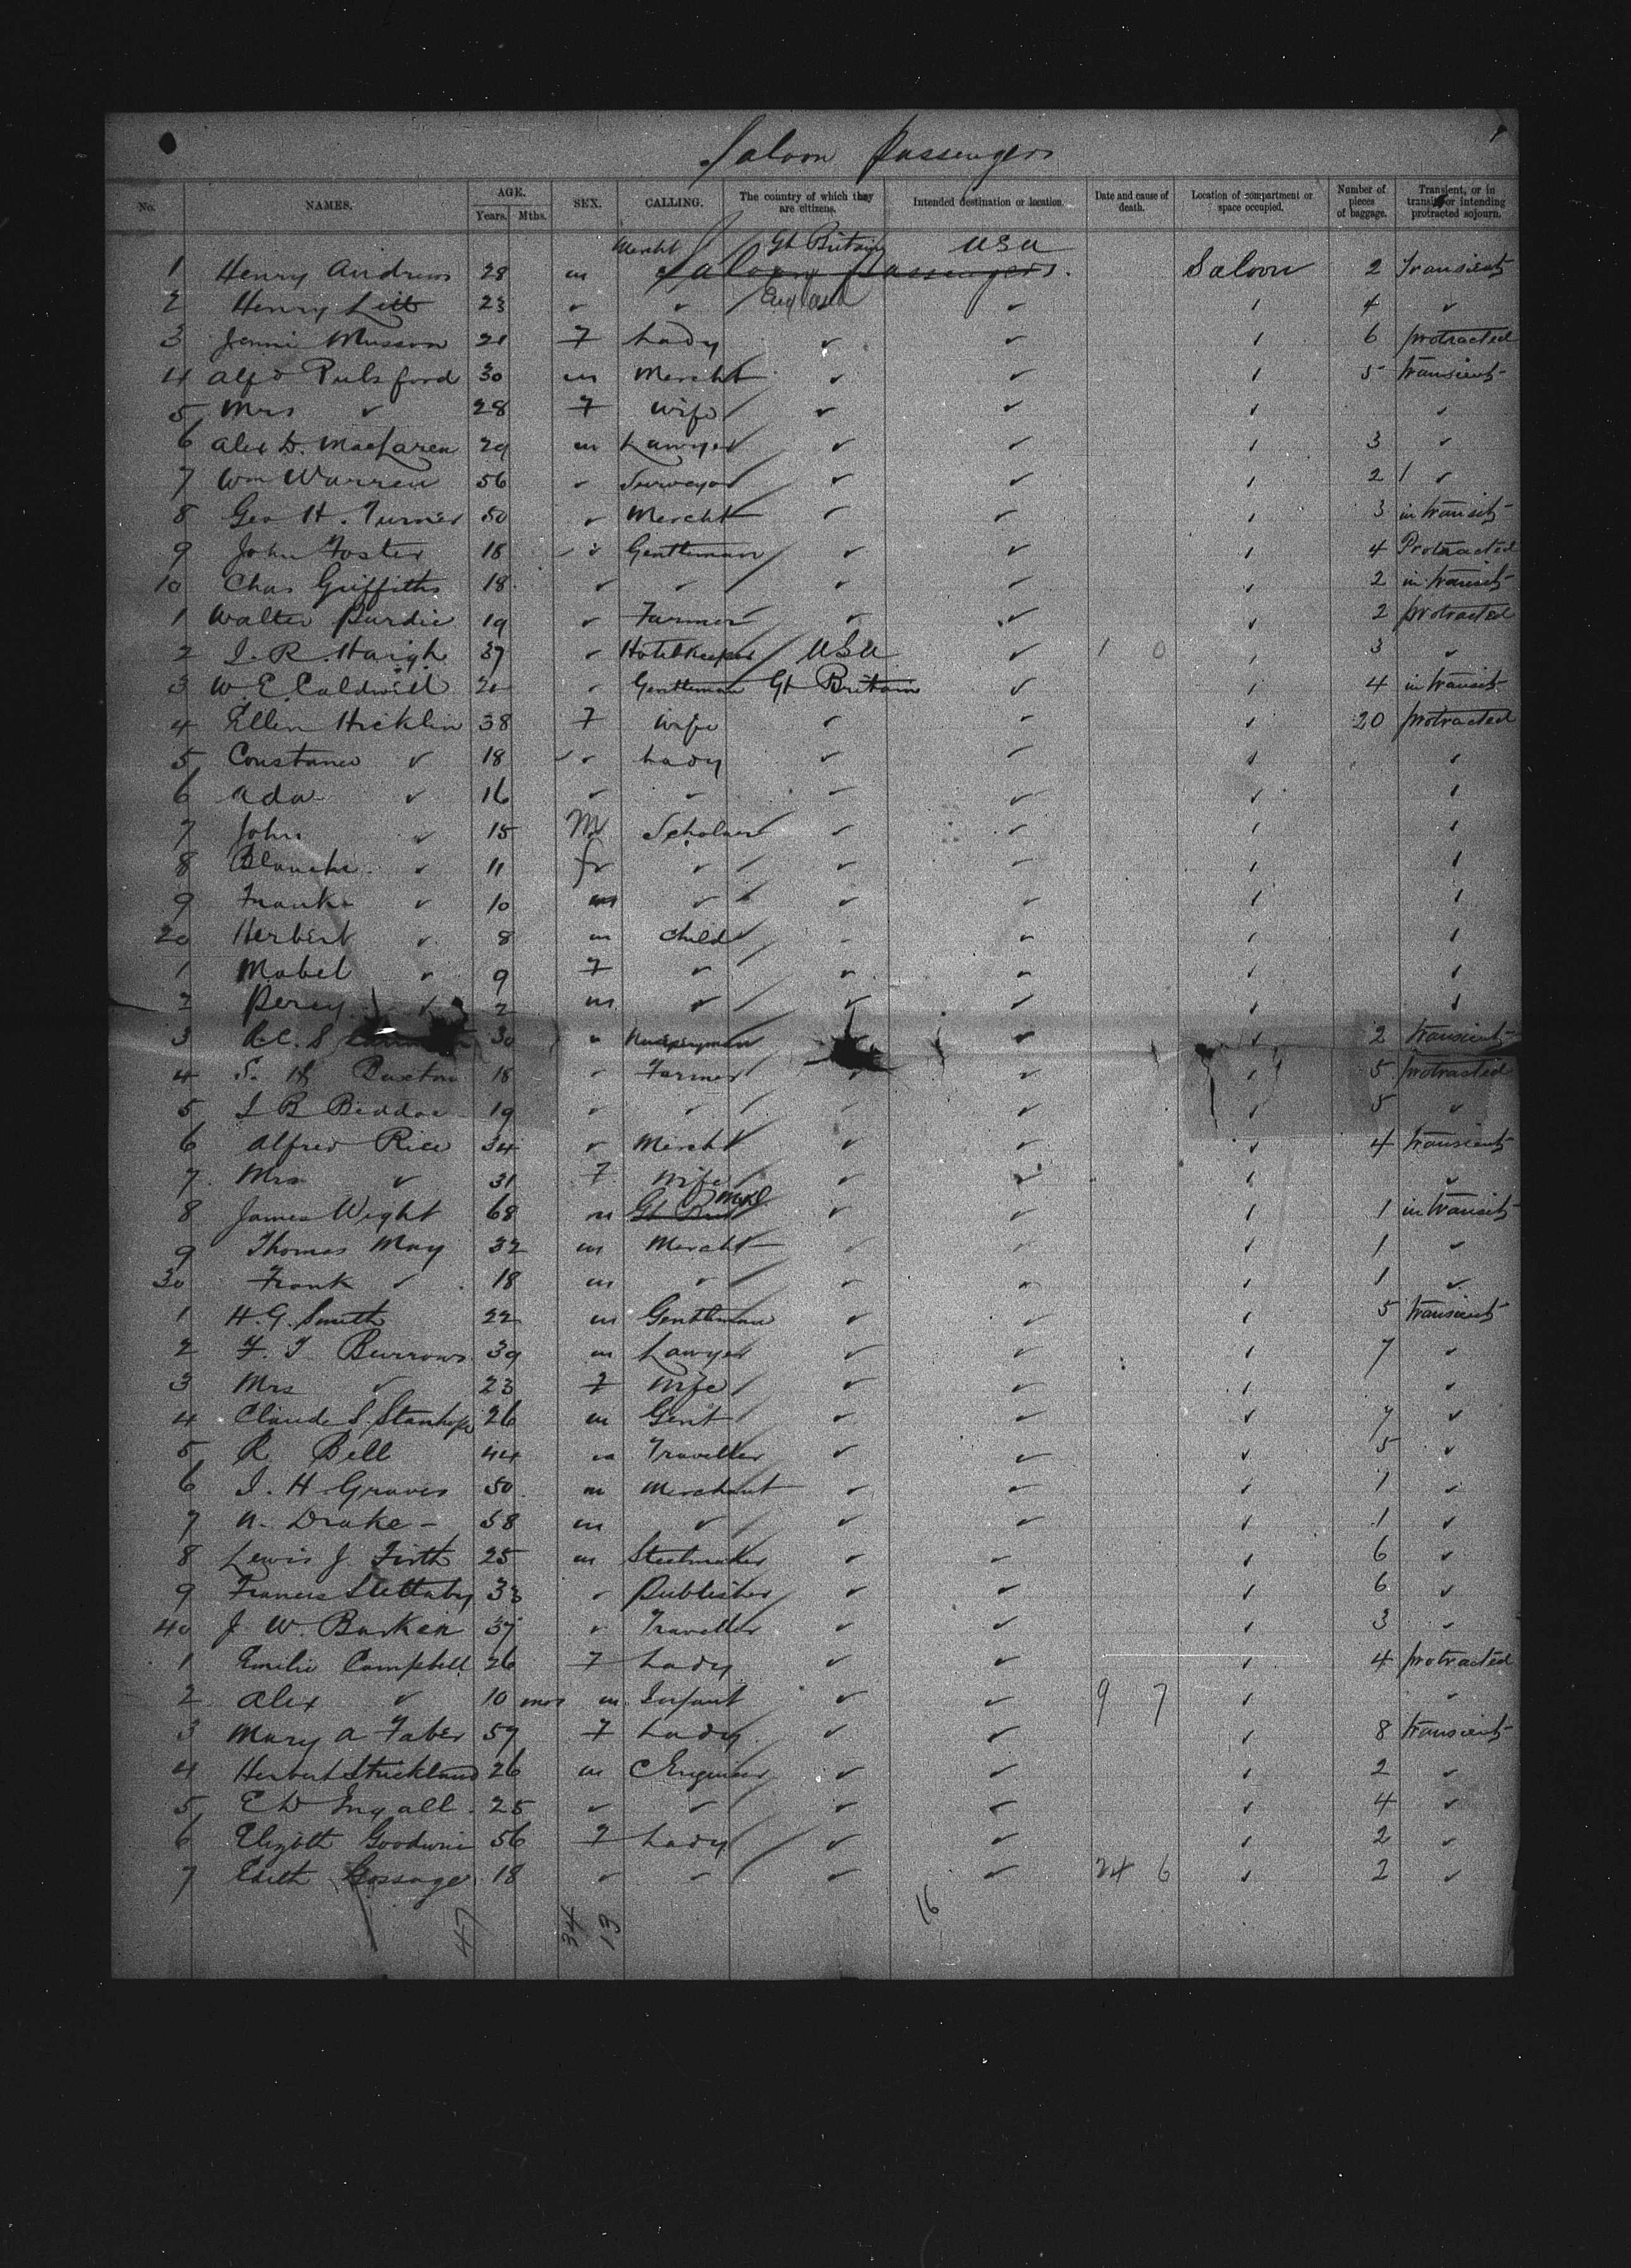 Saloon Passengers
No. NAMES. AGE. Years. Mths. SEX. CALLING. The country of which they are citizens. Intended destination or location. Date and cause of death. Location of compartment or space occupied. Number of pieces of baggage. Transient, or in transit, or intending protracted sojourn.
Mercht Gt Britain USA
1 Henry Andrews 28 m Saloon Passengers. Saloon 2 Transient
2 Henry Litt 23 ✓ ✓ England ✓ ✓ 4 ✓
3 Jenni Musson 21 F Lady ✓ ✓ ✓ 6 protracted
4 Alfd Pulsford 30 m Mercht ✓ ✓ ✓ 5 transient
5 Mrs ✓ 28 F Wife ✓ ✓ ✓ ✓
6 Alex D. MacLaren 29 m Lawyer ✓ ✓ ✓ 3 ✓
7 Wm Warren 56 ✓ Surveyor ✓ ✓ ✓ 2 1 ✓
8 Geo H. Turner 50 ✓ Mercht ✓ ✓ ✓ 3 in transit
9 John Foster 18 ✓ Gentleman ✓ ✓ ✓ 4 Protracted
10 Chas Griffiths 18 ✓ ✓ ✓ ✓ ✓ 2 in transit
1 Walter Purdie 19 ✓ Farmer ✓ ✓ ✓ 2 protracted
2 J. R. Haigh 37 ✓ Hotelkeeper USA ✓ 1 0 ✓ 3 ✓
3 W. E. Caldwell 20 ✓ Gentleman Gt Britain ✓ ✓ 4 in transit
4 Ellen Hicklin 38 F Wife ✓ ✓ ✓ 20 protracted
5 Constance ✓ 18 ✓ Lady ✓ ✓ ✓ ✓
6 Ada ✓ 16 ✓ ✓ ✓ ✓ ✓ ✓
7 John ✓ 15 M Scholar ✓ ✓ ✓ ✓
8 Blanche ✓ 11 f ✓ ✓ ✓ ✓ ✓
9 Frank ✓ 10 m ✓ ✓ ✓ ✓ ✓
20 Herbert ✓ 8 m child ✓ ✓ ✓ ✓
1 Mabel ✓ 9 F ✓ ✓ ✓ ✓ ✓
2 Percy ✓ 2 m ✓ ✓ ✓ ✓ ✓
3 R.C. S 30 ✓ ✓ ✓ 2 transient
4 S. H. Buxton 18 ✓ Farmer ✓ ✓ ✓ 5 protracted
5 J B Beddoe 19 ✓ ✓ ✓ ✓ ✓ 5 ✓
6 Alfred Rice 34 ✓ Mercht ✓ ✓ ✓ 4 transient
7 Mrs ✓ 31 F Wife ✓ ✓ ✓ ✓
8 James Wight 68 m Gt Brit ✓ ✓ ✓ 1 in transit
9 Thomas May 32 m Mercht ✓ ✓ ✓ 1 ✓
30 Frank ✓ 18 m ✓ ✓ ✓ ✓ 1 ✓
1 H. G. Smith 22 m Gentleman ✓ ✓ ✓ 5 transient
2 F. J Burrows 39 m Lawyer ✓ ✓ ✓ 7 ✓
3 Mrs ✓ 23 F Wife ✓ ✓ ✓ ✓
4 Claude S. Stanhope 26 m Gent ✓ ✓ ✓ 7 ✓
5 R Bell 44 m Traveller ✓ ✓ ✓ 5 ✓
6 J. H. Graves 50 m Merchant ✓ ✓ ✓ 1 ✓
7 N. Drake 58 m ✓ ✓ ✓ ✓ 1 ✓
8 Lewis J. Firth 25 m Steelmaker ✓ ✓ ✓ 6 ✓
9 Francis Slettaby 33 ✓ Publisher ✓ ✓ ✓ 6 ✓
40 J W. Barker 37 ✓ Traveller ✓ ✓ ✓ 3 ✓
1 Emilie Campbell 26 F Lady ✓ ✓ ✓ 4 protracted
2 Alex ✓ 10 mos m Infant ✓ ✓ 9 7 ✓ ✓
3 Mary A Faber 57 F Lady ✓ ✓ ✓ 8 transient
4 Herbert Strickland 26 m C Engineer ✓ ✓ ✓ 2 ✓
5 E D Ingall 25 ✓ ✓ ✓ ✓ ✓ 4 ✓
6 Elizbth Goodwin 56 F Lady ✓ ✓ ✓ 2 ✓
7 Edith Gossage 18 ✓ ✓ ✓ ✓ 24 6 ✓ 2 ✓
47 34 13 16